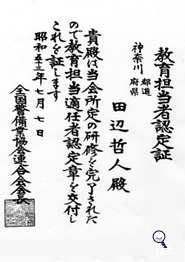 教育担当者認定証
神奈川 都道府県
田辺哲人殿
貴殿は当会所定の研修を完了された
ので教育担当適任者認定章を交付し
これを証します
昭和五十三年七月七日
全国警備業協会連合会会長